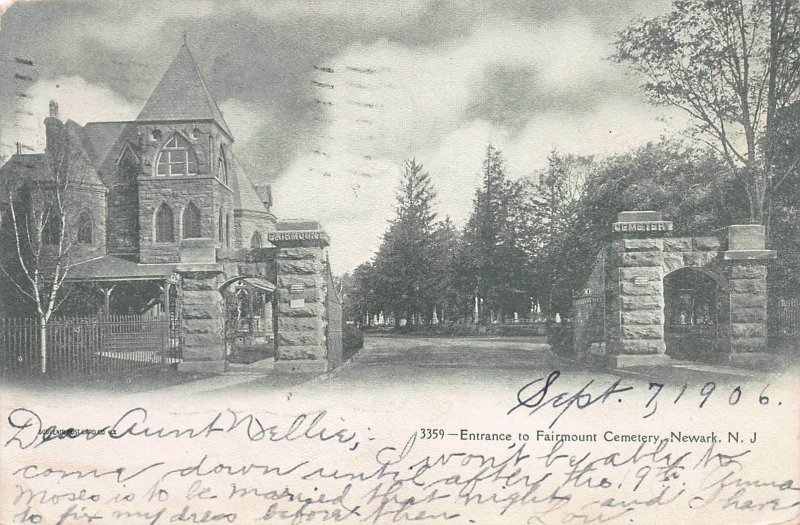 FAIRMOUNT
CEMETERY
Sept. 7, 1906.
3359—Entrance to Fairmount Cemetery, Newark. N. J
Dear Aunt Nellie;— I won't be ably to
come down until after the 19th. Anna
Moses is to be married that night and I have
to fix my dress before then. Lou